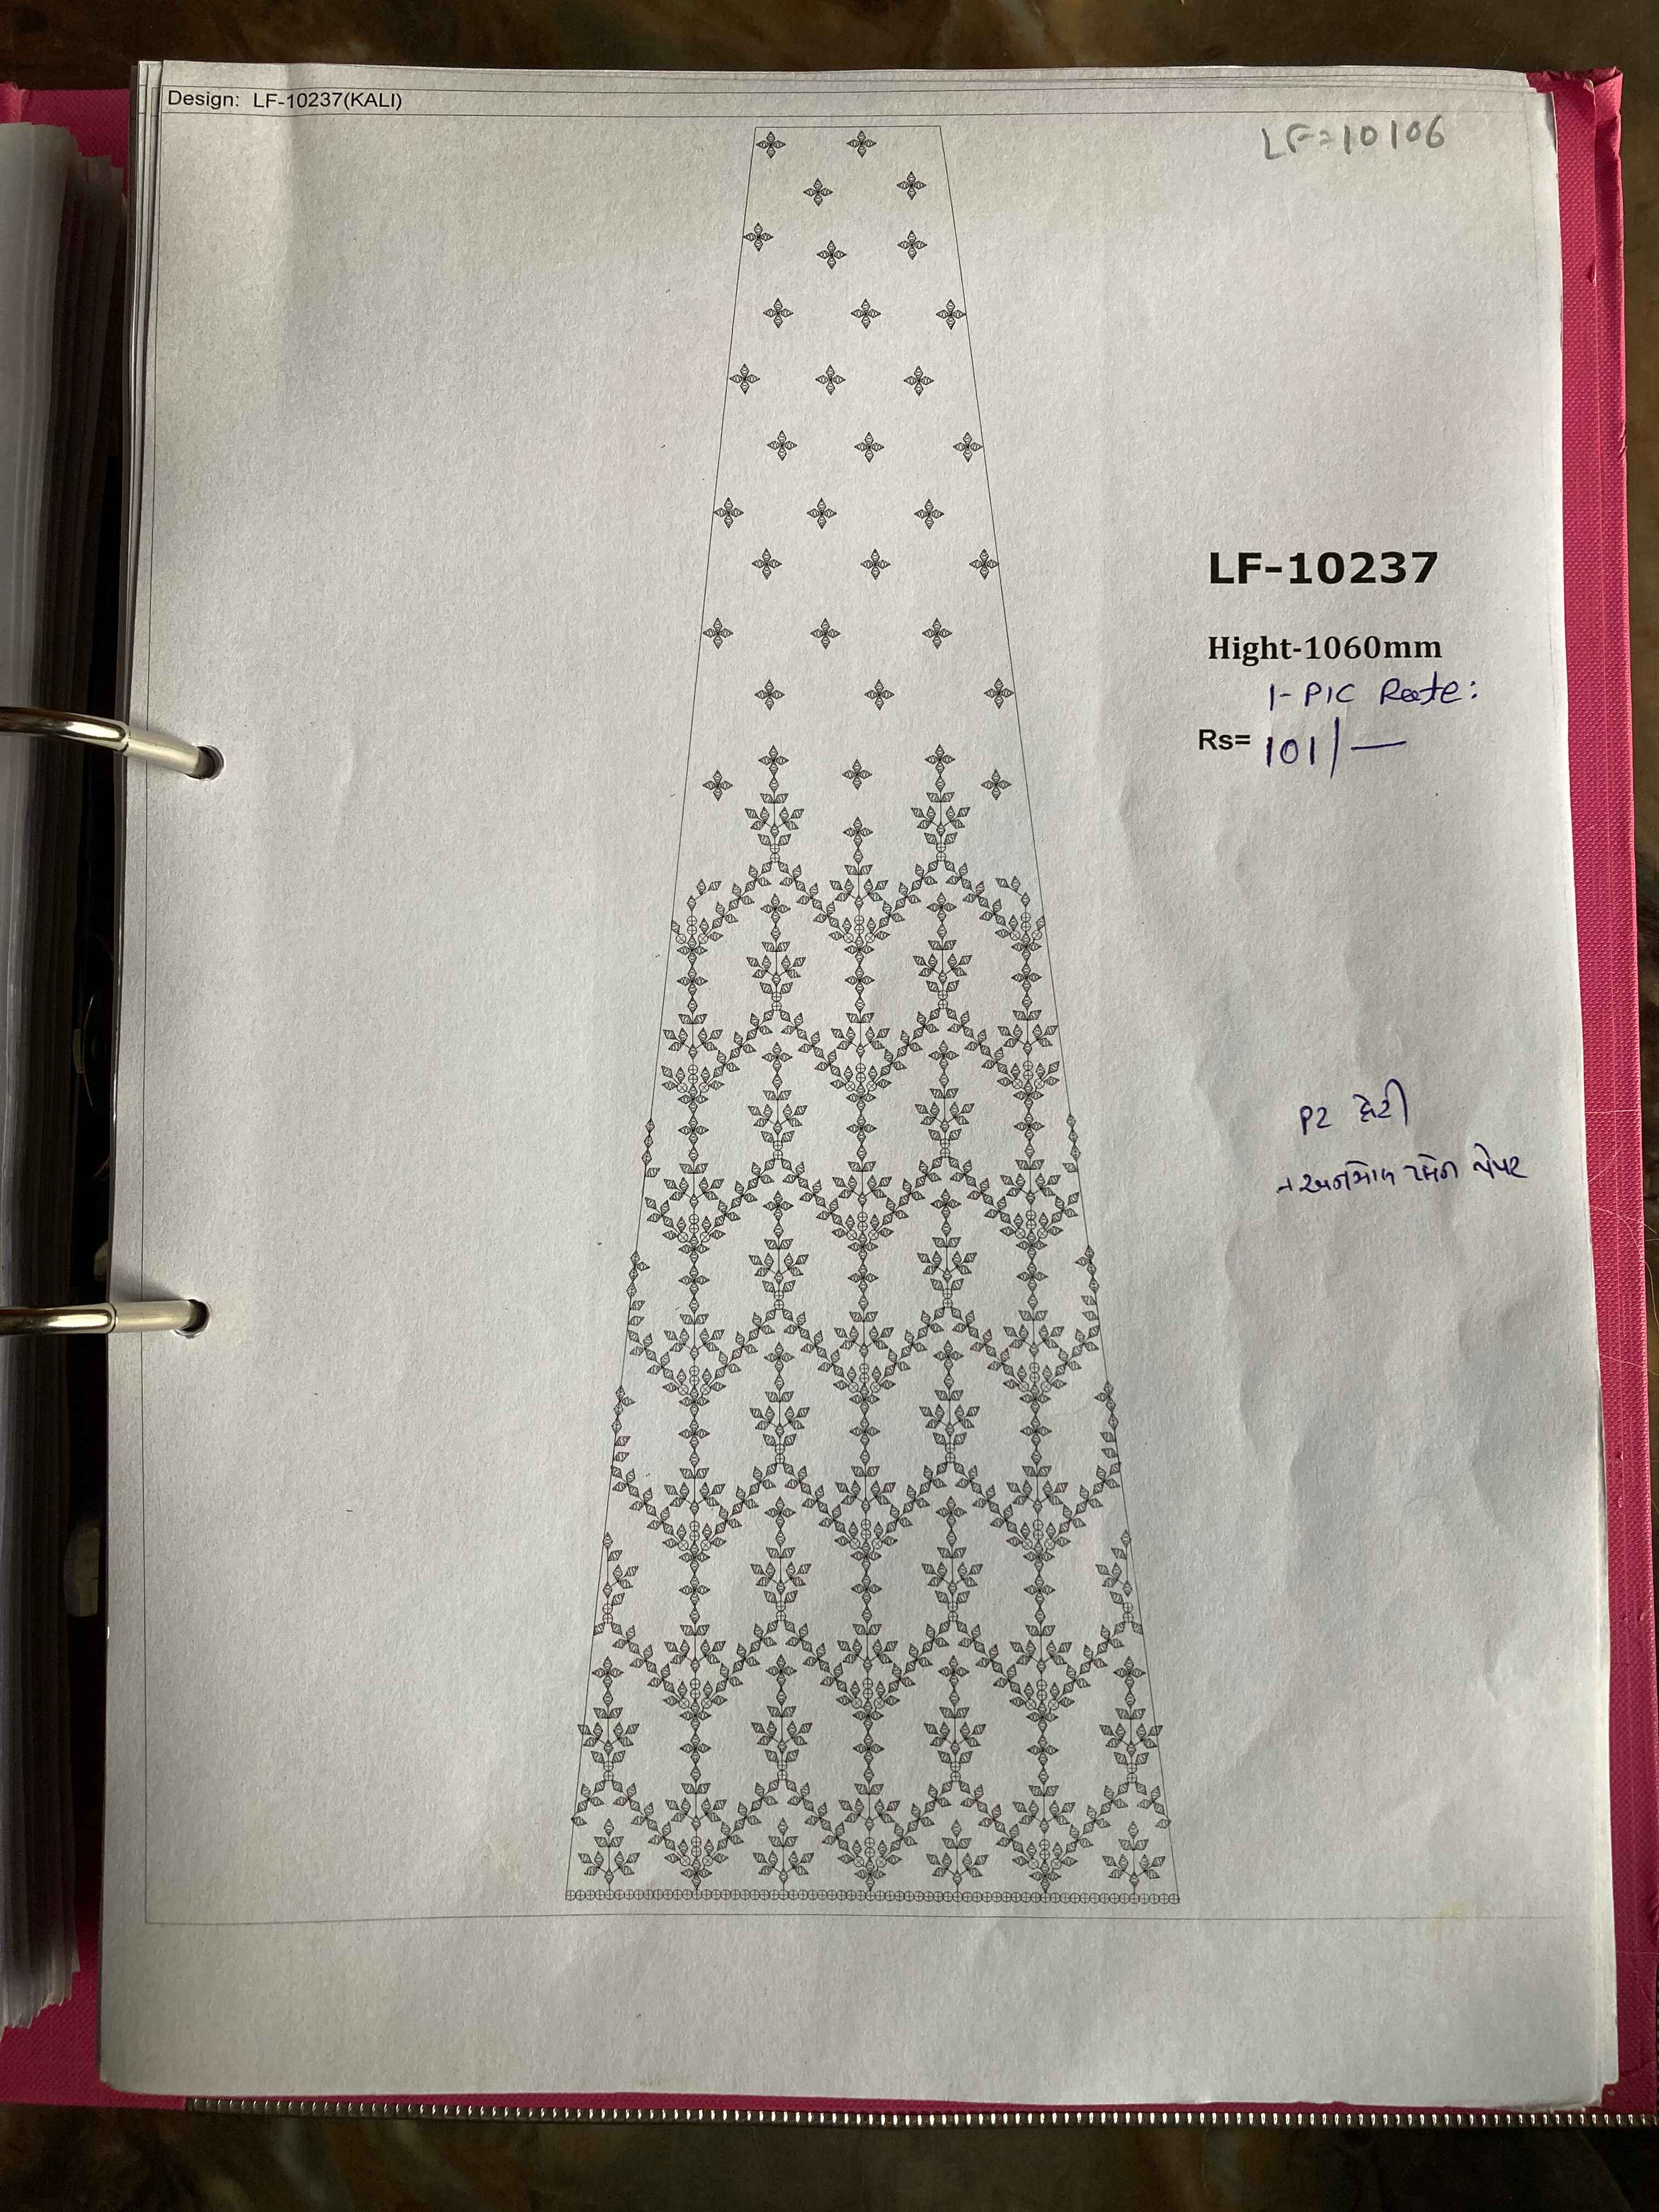 Design: LF-10237(KALI)
LF=10106
LF-10237
Hight-1060mm
1-PIC Rate:
Rs= 101/—
P2
પેપર